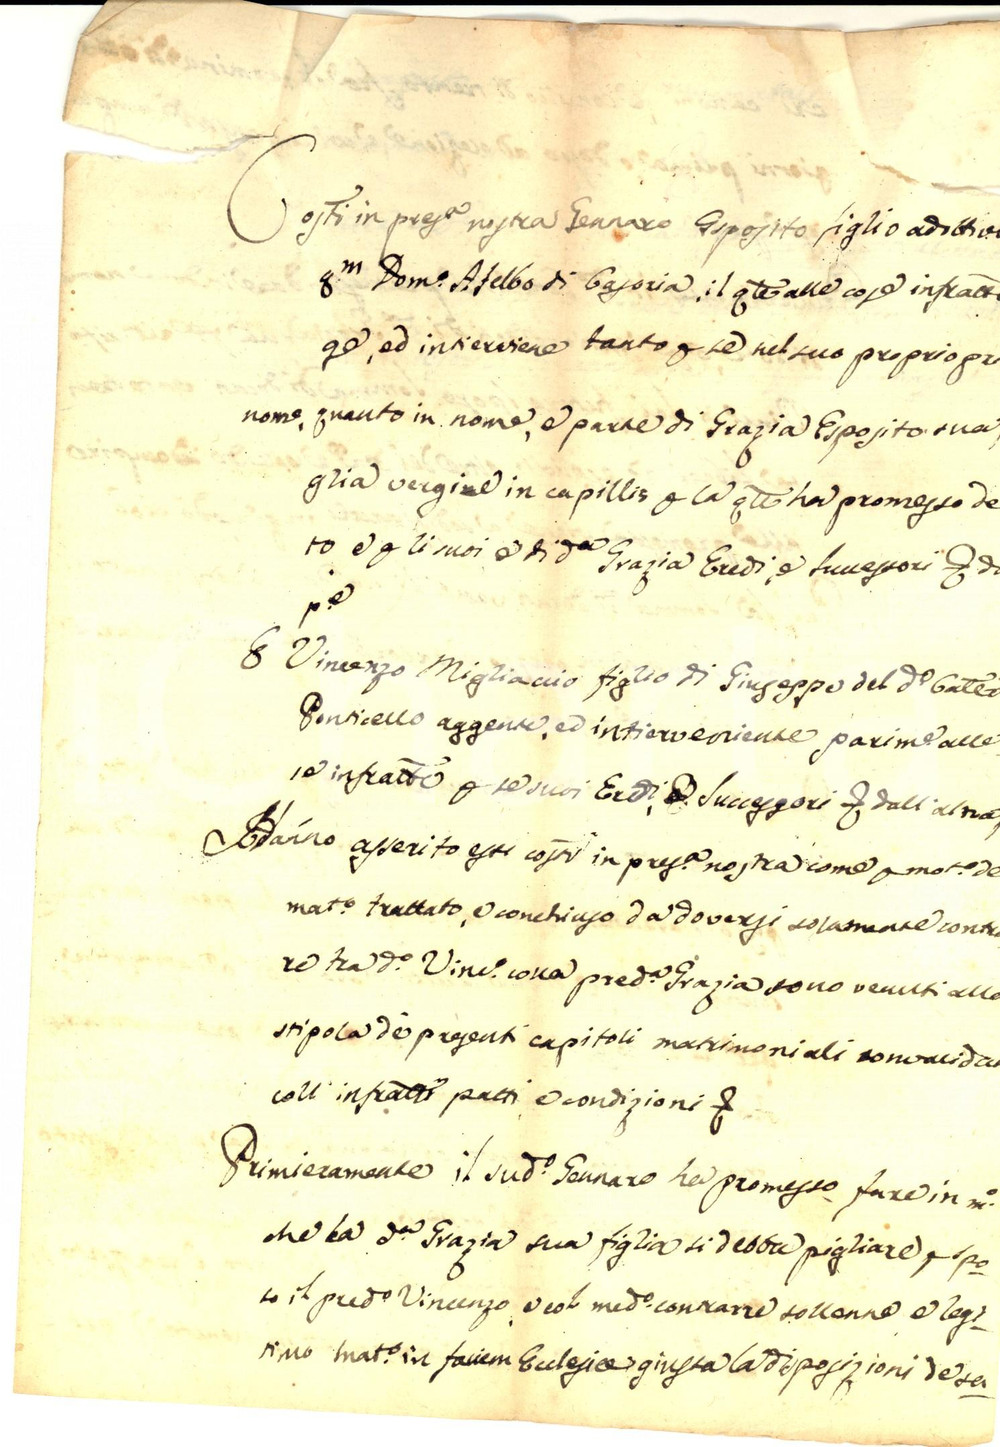 Costi in pres.a nostra Gennaro Esposito figlio adottivo
qm Dom.o di Casoria, il qte alle cose infratte
ge, ed interviene tanto p se nel suo proprio pr
nome, quanto in nome, e parte di Grazia Esposito sua
glia vergine in capillis p la qte ha promesso de
to e p li suoi e di d.a Grazia Eredi, e Successori & da
p.e
E Vincenzo Migliaccio figlio di Giuseppe del d.o
Ponticello aggente, ed interveniente parime alle
se infratte p se suoi Eredi, e Successori & dall'altra
Hanno asserito essi costi in pres.a nostra come p mot.o de
mat.o trattato, e conchiuso da doversi solamente contra
re tra d.o Vinc.o colla pred.a Grazia sono venuti alla
stipola de presenti capitoli matrimoniali convalidan
coll' infratti patti e condizioni &
Primieramente il sud.o Gennaro ha promesso fare in m.o
che la d.a Grazia sua figlia si debba pigliare p spo-
so il pred.o Vincenzo, e col med.o contrarre sollenne e legi-
timo mat.o in faciem Ecclesie giusta la disposizioni de sa-